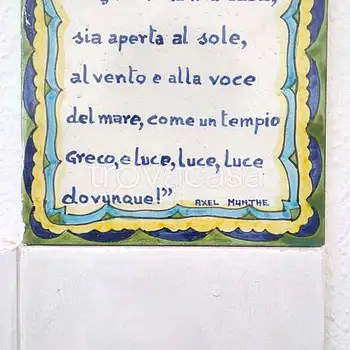 sia aperta al sole,
al vento e alla voce
del mare, come un tempio
Greco, e luce, luce, luce
trovacasa
dovunque!”
AXEL MUNTHE